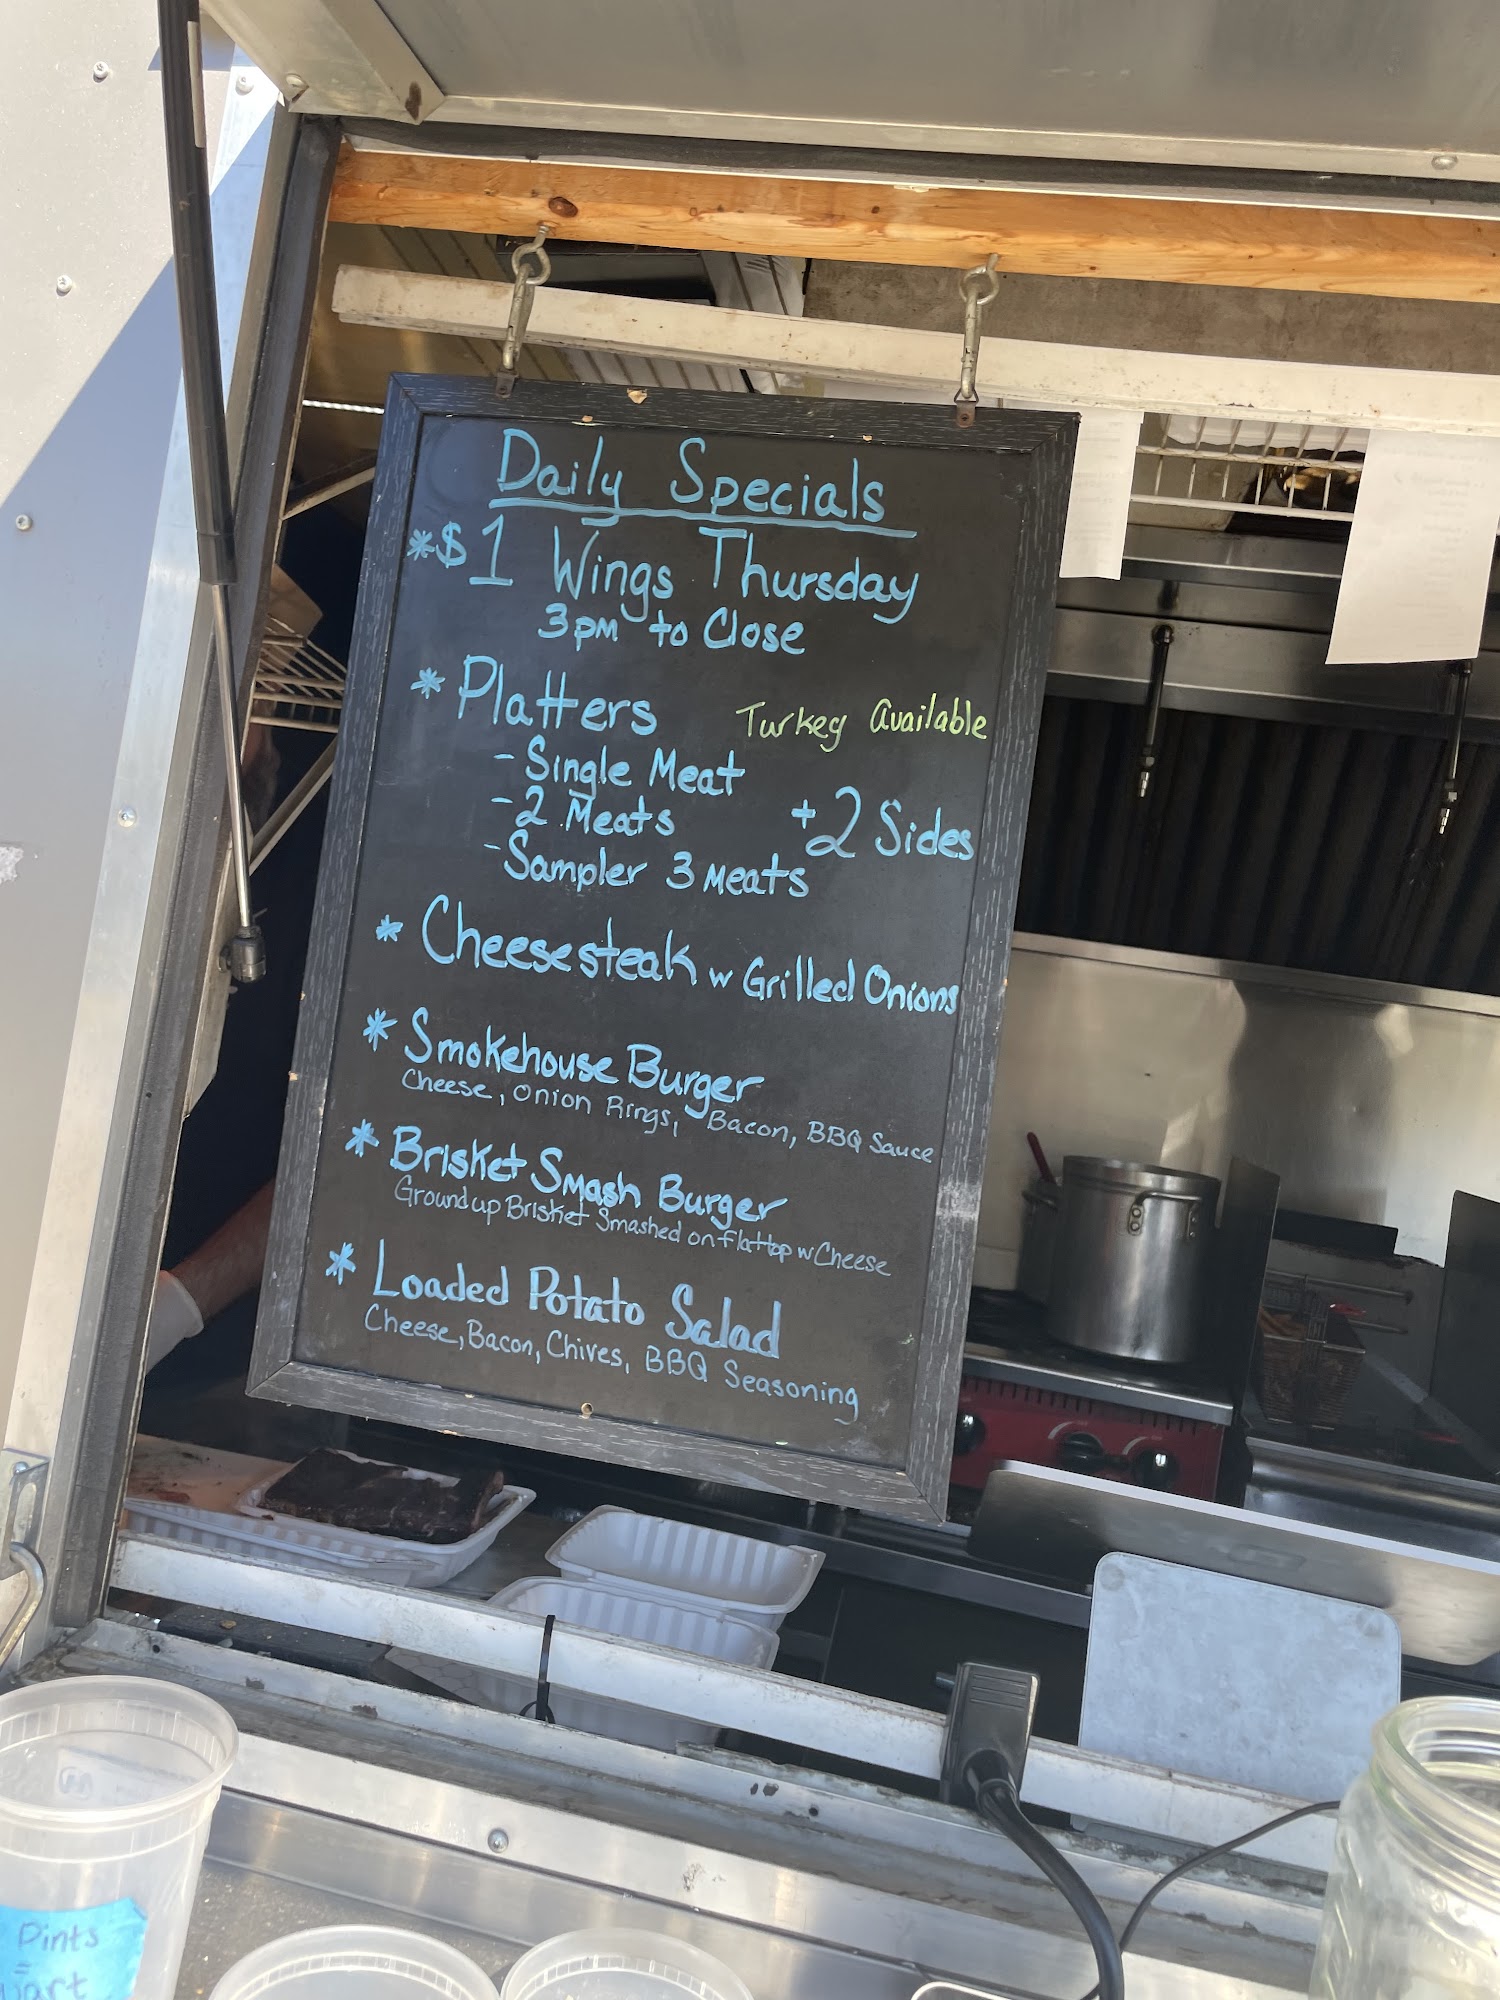 Daily Specials
*$1 Wings Thursday
3pm to Close
* Platters
Turkey Available
- Single Meat
- 2 Meats
+2 Sides
- Sampler 3 Meats
* Cheesesteak w Grilled Onions
* Smokehouse Burger
Cheese, Onion Rings, Bacon, BBQ Sauce
* Brisket Smash Burger
Ground up Brisket Smashed on flattop w Cheese
* Loaded Potato Salad
Cheese, Bacon, Chives, BBQ Seasoning
Pints
=